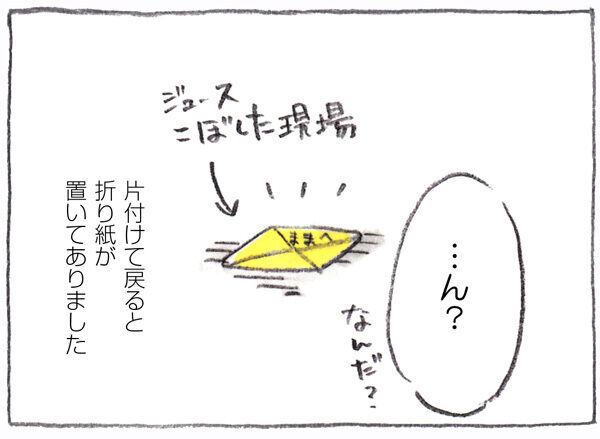 …ん？
なんだ？
ジュース
こぼした現場
ままへ
片付けて戻ると
折り紙が
置いてありました